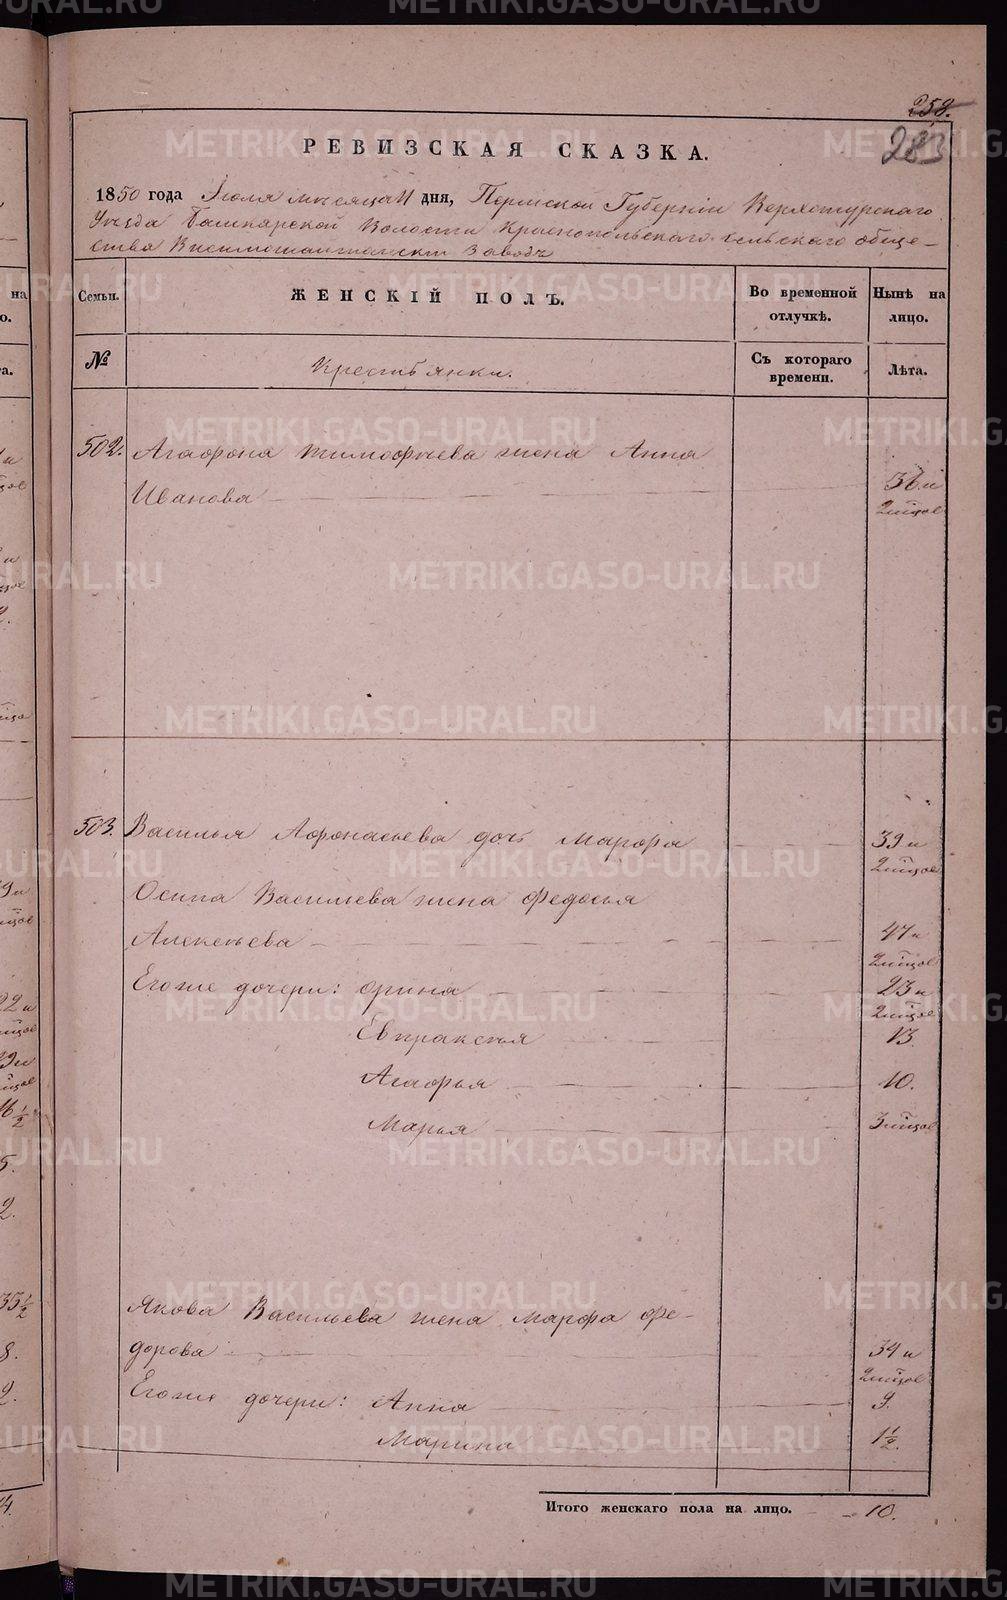 258.
283
РЕВИЗСКАЯ СКАЗКА.
1850 года Іюля мѣсяца 11 дня, Пермской Губерніи Верхотурскаго
Уѣзда Башкарской Волости Краснопольскаго сельскаго обще-
ства Висимошайтанскій Заводъ
Семьи.
ЖЕНСКІЙ ПОЛЪ.
Во временной отлучкѣ.
Нынѣ на лицо.
№
Крестьянки.
Съ котораго времени.
Лѣта.
502. Агафона Тимофѣева жена Анна
Иванова 36 и
2 мѣсцов
503. Василья Афонасьева дочь Марфа 39 и
2 мѣсцов
Осипа Васильева жена Федосья
Алексѣева 47 и
2 мѣсцов
Его же дочери: Орина 23 и
2 мѣсцов
Евпраксья 13.
Агафья 10.
Марья 3 мѣсцов
Якова Васильева жена Марфа Фе-
дорова 34 и
2 мѣсцов
Его же дочери: Анна 9.
Марина 1½.
Итого женскаго пола на лицо. 10.
METRIKI.GASO-URAL.RU